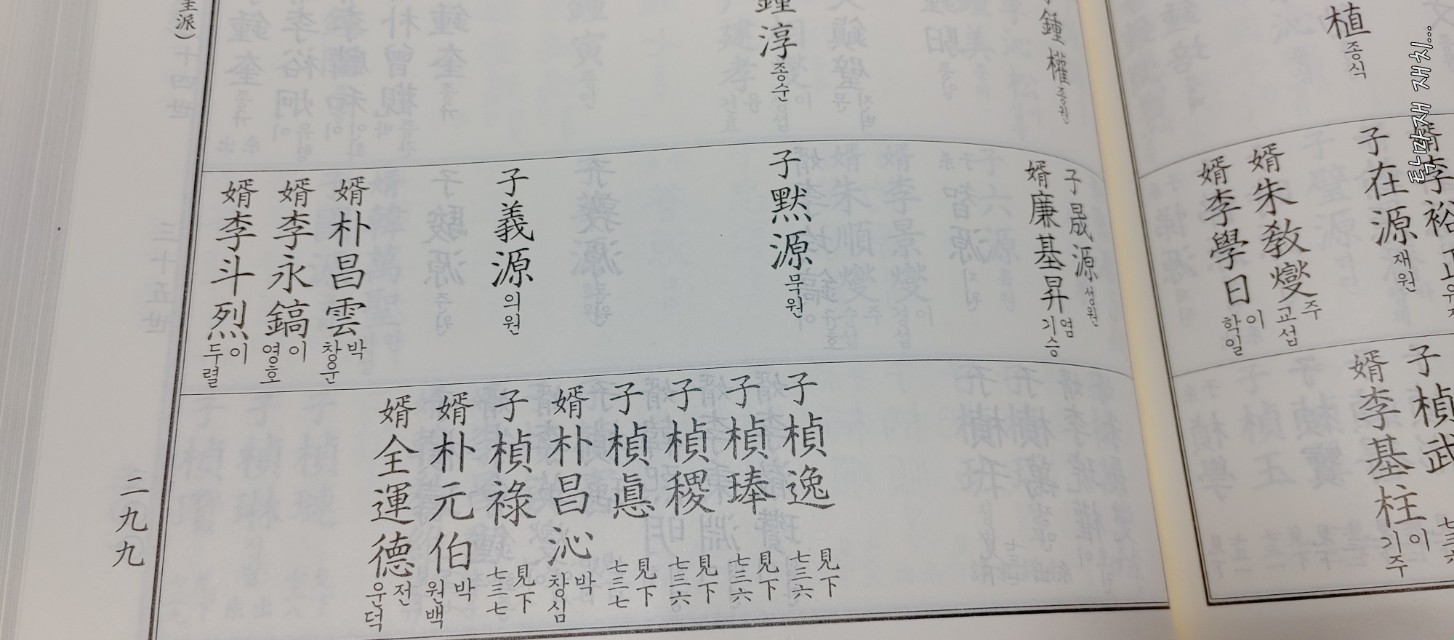 植 종식
子 在源 재원
婿 朱敎燮 주교섭
婿 李學日 이학일
子 楨武
婿 李基柱 이기주
鍾權 종권
子 晟源 성원
婿 廉基昇 염기승
鍾淳 종순
子 默源 묵원
子 義源 의원
婿 朴昌雲 박창운
婿 李永鎬 이영호
婿 李斗烈 이두렬
子 楨逸 見下 七三六
子 楨琫 見下 七三六
子 楨稷 見下 七三六
子 楨悳 見下 七三七
婿 朴昌沁 박창심
子 楨祿 見下 七三七
婿 朴元伯 박원백
婿 全運德 전운덕
派)
二九九
탁막재 재치...